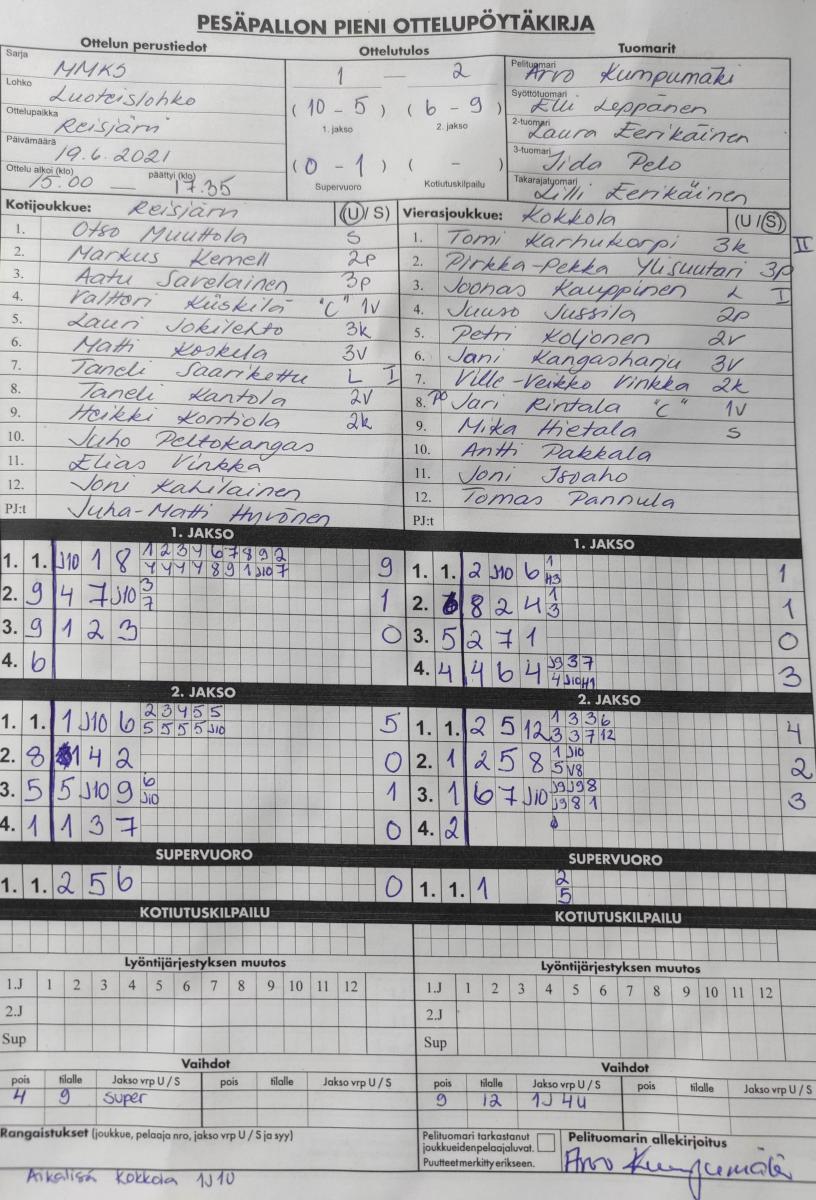 PESÄPALLON PIENI OTTELUPÖYTÄKIRJA
Ottelun perustiedot Ottelutulos Tuomarit
Sarja MMKS
Lohko Luoteislohko
Ottelupaikka Reisjärvi
Päivämäärä 19.6.2021
Ottelu alkoi (klo) 15.00 — päättyi (klo) 17.35
1 — 2
( 10 - 5 ) ( 6 - 9 )
1. jakso 2. jakso
( 0 - 1 ) ( - )
Supervuoro Kotiutuskilpailu
Pelituomari Arvo Kumpumäki
Syöttötuomari Elli Leppänen
2-tuomari Laura Eerikäinen
3-tuomari Iida Pelo
Takarajatuomari Lilli Eerikäinen
Kotijoukkue: Reisjärvi (U/ S)
1. Otso Muuttola S
2. Markus Kemell 2p
3. Aatu Savelainen 3p
4. Valtteri Kiiskilä "C" 1V
5. Lauri Jokilehto 3k
6. Matti Koskela 3V
7. Taneli Saarikettu L I
8. Taneli Kantola 2V
9. Heikki Kontiola 2k
10. Juho Peltokangas
11. Elias Vinkka
12. Joni Kahilainen
PJ:t Juha-Matti Hyvönen
Vierasjoukkue: Kokkola (U /S)
1. Tomi Karhukorpi 3k II
2. Pirkka-Pekka Ylisuutari 3p
3. Joonas Kauppinen L I
4. Juuso Jussila 2p
5. Petri Koljonen 2V
6. Jani Kangasharju 3V
7. Ville-Veikko Vinkka 2k
8. PO Jari Rintala "C" 1V
9. Mika Hietala S
10. Antti Pakkala
11. Joni Isoaho
12. Tomas Pannula
PJ:t
1. JAKSO
1. 1. J10 1 8 1 2 3 4 6 7 8 9 2 9
4 4 4 4 8 9 1 J10 7
2. 9 4 7 J10 3 1
7
3. 9 1 2 3 0
4. 6
1. JAKSO
1. 1. 2 J10 6 1 1
H3
2. 8 2 4 1 1
3
3. 5 2 7 1 0
4. 4 4 6 4 J9 3 7 3
4 J10 H1
2. JAKSO
1. 1. 1 J10 6 2 3 4 5 5 5
5 5 5 5 J10
2. 8 1 4 2 0
3. 5 5 J10 9 6 1
J10
4. 1 1 3 7 0
2. JAKSO
1. 1. 2 5 12 1 3 3 6 4
3 3 7 12
2. 1 2 5 8 1 J10 2
5 V8
3. 1 6 7 J10 J9 J9 8 3
J9 8 1
4. 2
SUPERVUORO
1. 1. 2 5 6 0
SUPERVUORO
1. 1. 1 2
5
KOTIUTUSKILPAILU
KOTIUTUSKILPAILU
Lyöntijärjestyksen muutos
1.J 1 2 3 4 5 6 7 8 9 10 11 12
2.J
Sup
Lyöntijärjestyksen muutos
1.J 1 2 3 4 5 6 7 8 9 10 11 12
2.J
Sup
Vaihdot
pois tilalle Jakso vrp U / S pois tilalle Jakso vrp U / S
4 9 super
Vaihdot
pois tilalle Jakso vrp U / S pois tilalle Jakso vrp U / S
9 12 1J 4U
Rangaistukset (joukkue, pelaaja nro, jakso vrp U / S ja syy)
Aikalisä Kokkola 1J 1U
Pelituomari tarkastanut
joukkueidenpelaajaluvat.
Puutteet merkitty erikseen.
Pelituomarin allekirjoitus
Arvo Kumpumäki